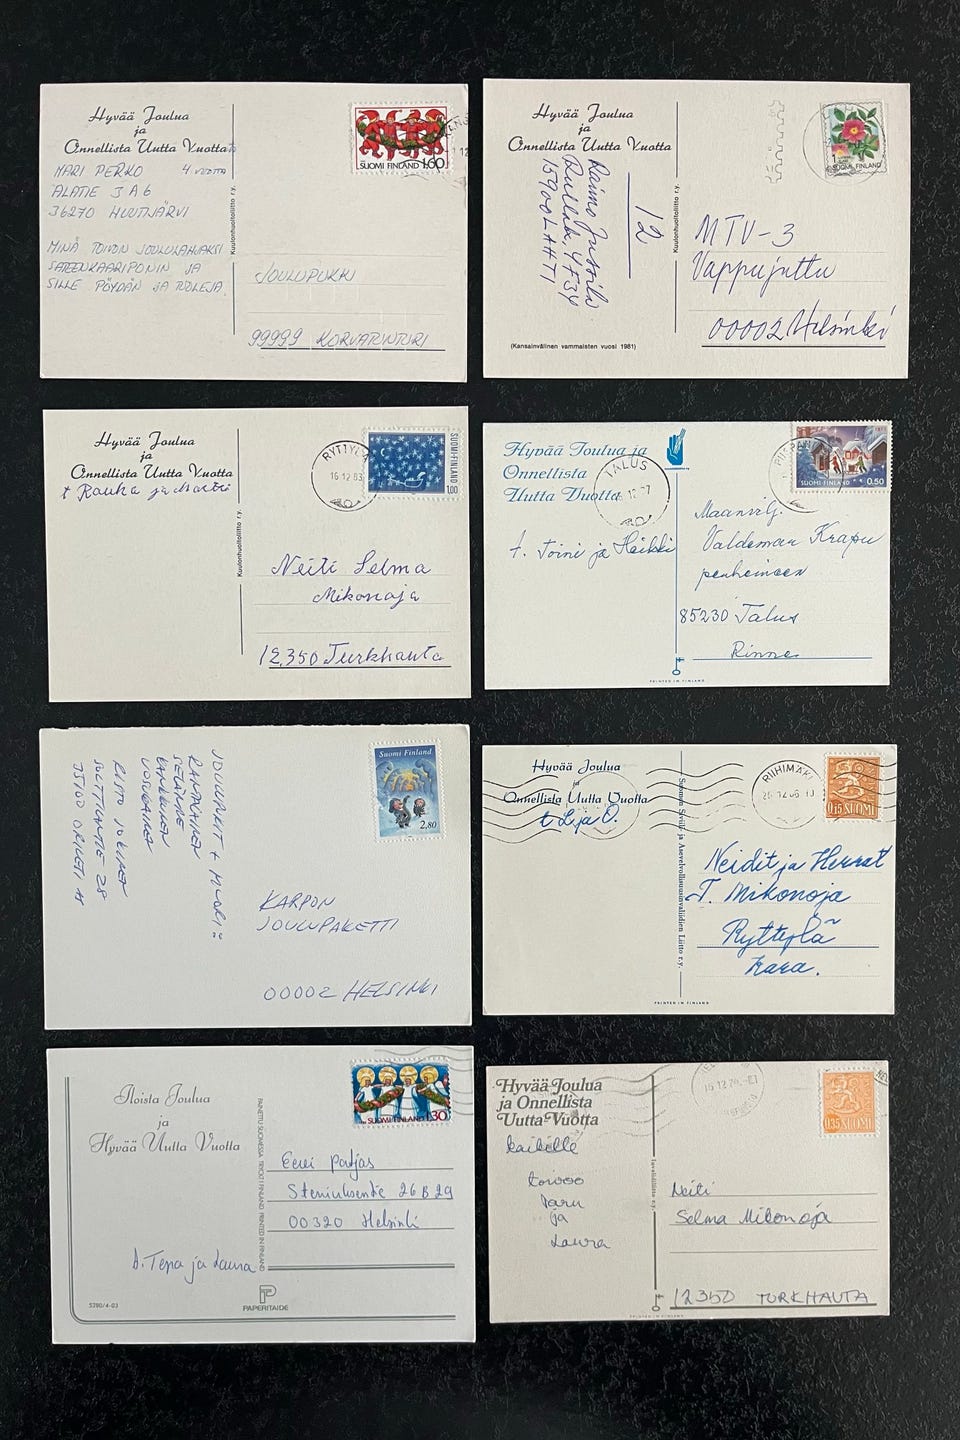 Hyvää Joulua
ja
Onnellista Uutta Vuotta
MARI PERKO 4 vuotta
ALATIE 3 A 6
36270 HUUTIJÄRVI
MINÄ TOIVON JOULULAHJAKSI
SATEENKAARIPONIN JA
SILLE PÖYDÄN JA TUOLEJA.
Kuulonhuoltoliitto r.y.
SUOMI FINLAND 1,60
JOULUPUKKI
99999 KORVATUNTURI
Hyvää Joulua
ja
Onnellista Uutta Vuotta
Raimo Jussila
Rullak. 4F34
15900 LAHTI
12
Kuulonhuoltoliitto r.y.
(Kansainvälinen vammaisten vuosi 1981)
SUOMI FINLAND
MTV-3
Vappujuttu
00002 Helsinki
Hyvää Joulua
ja
Onnellista Uutta Vuotta
t Rauha ja Martti
Kuulonhuoltoliitto r.y.
RYTTYLÄ
16.12.83
SUOMI-FINLAND
1,00
Neiti Selma
Mikonoja
12350 Turkhauta
Hyvää Joulua ja
Onnellista
Uutta Vuotta
TALUS
t. Toini ja Heikki
SUOMI-FINLAND 0,50
Maanvilj.
Valdemar Krapu
perheineen
85230 Talus
Rinne
PRINTED IN FINLAND
JOULUPUKIT + MUORI:
VOSUKAINEN
RISTO JOKINEN
SULTTILANTIE 28
Suomi Finland
2,80
KARPON
JOULUPAKETTI
00002 HELSINKI
Hyvää Joulua
ja
Onnellista Uutta Vuotta
t Lija O.
Suomen Siviili- ja Asevelvollisuusinvaliidien Liitto r.y.
RIIHIMÄKI
0,15 SUOMI
Neidit ja Herrat
T. Mikonoja
Ryttylä
Kara.
PRINTED IN FINLAND
Iloista Joulua
ja
Hyvää Uutta Vuotta
t. Tepa ja Laura
5280/4-03
PAINETTU SUOMESSA TRYCKT I FINLAND PRINTED IN FINLAND
PAPERITAIDE
SUOMI FINLAND 1,30
Eevi Parjas
Steniuksentie 26 B 29
00320 Helsinki
Hyvää Joulua
ja Onnellista
Uutta Vuotta
kaikille
toivoo
Taru
ja
Laura
Invalidiliitto r.y.
0,35 SUOMI
Neiti
Selma Mikonoja
12350 TURKHAUTA
PRINTED IN FINLAND